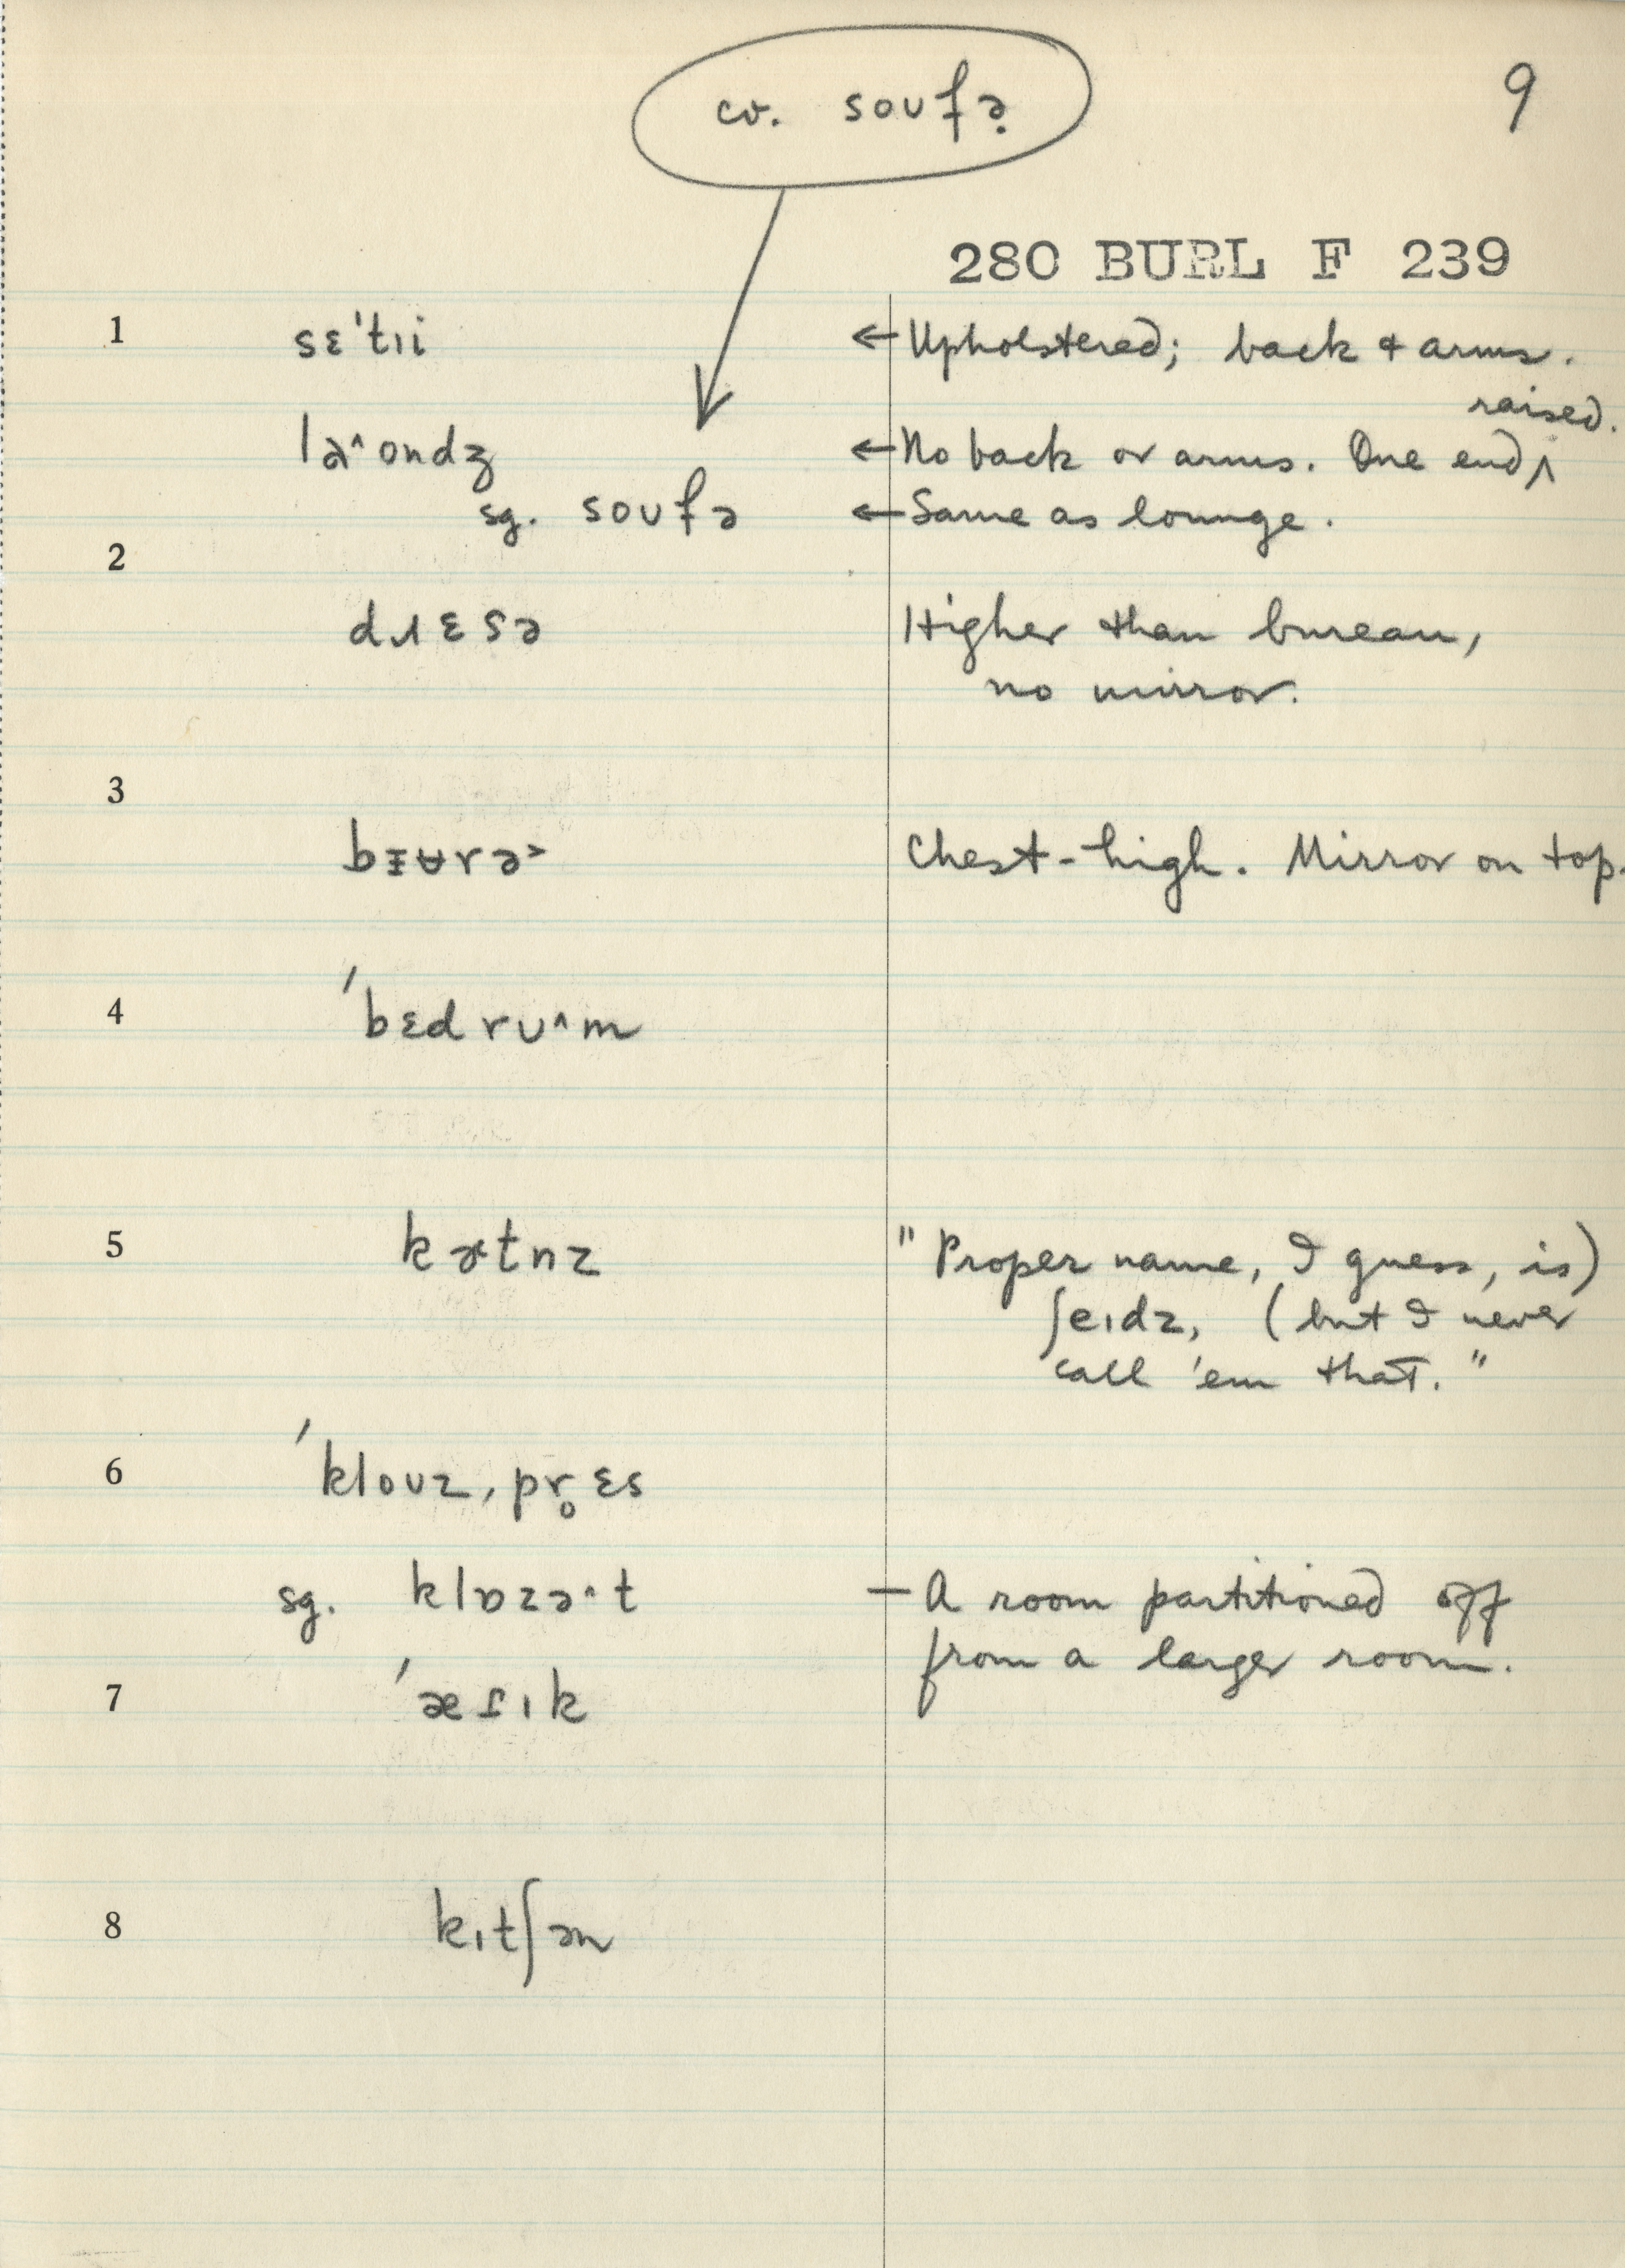 cv. soʊfə̣
9
280 BURL F 239
1 sɛˈtɪi ← Upholstered; back & arms.
raised.
← No back or arms. One end ^
sg. soʊfə ← Same as lounge.
2
dɹɛsə Higher than bureau,
no mirror.
3
Chest-high. Mirror on top.
4 ˈbɛdrʊ^m
5 "Proper name, I guess, is)
ʃeɪdz, (but I never
call 'em that."
6 ˈkloʊz, pr̥ɛs
sg. klɒzə^t — A room partitioned off
from a larger room.
7
8 kɪtʃən